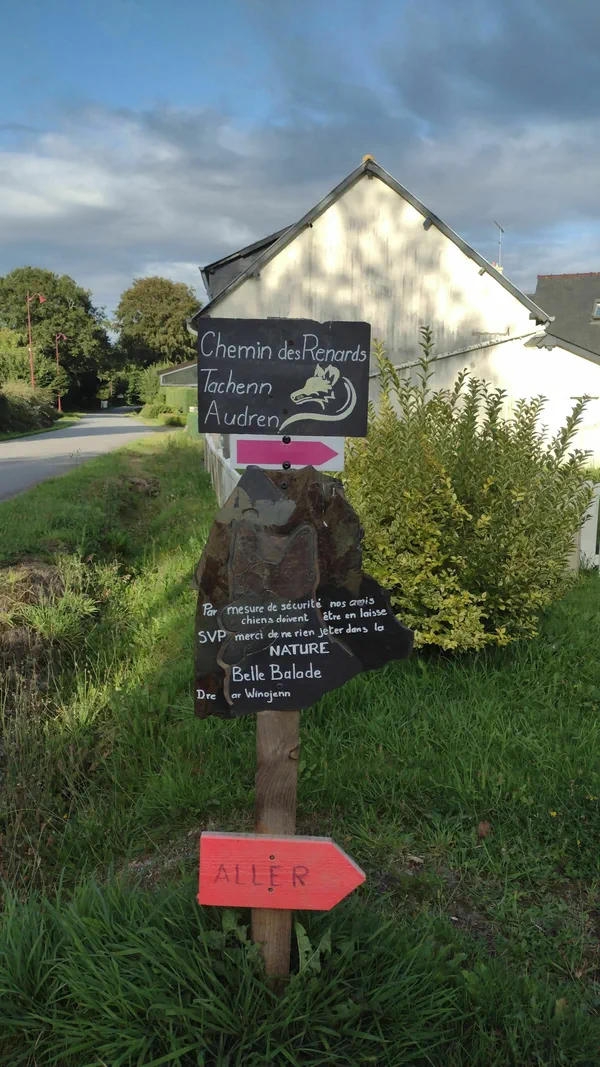 Chemin des Renards
Tachenn
Audren
Par mesure de sécurité nos amis
chiens doivent être en laisse
SVP merci de ne rien jeter dans la
NATURE
Belle Balade
Dre ar Winojenn
ALLER